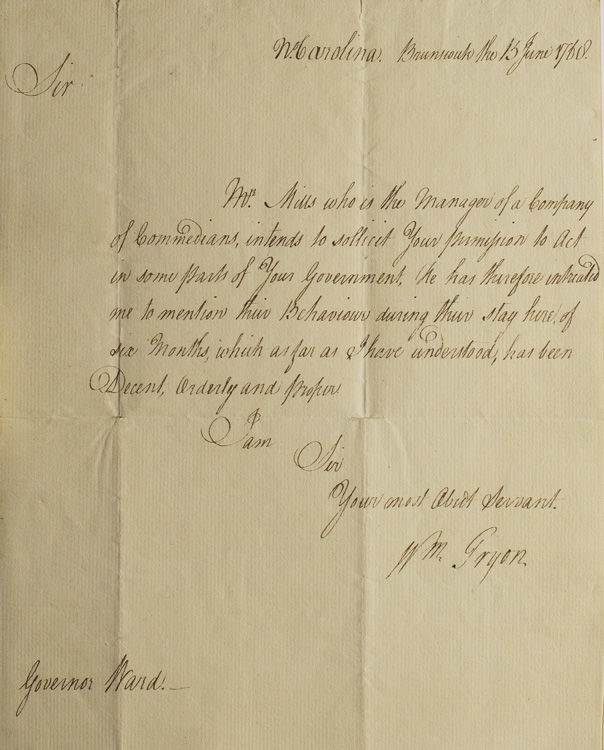 No Carolina. Brunswick the 15 June 1768.
Sir
Mr. Mills who is the Manager of a Company
of Commedians, intends to sollicit Your permission to Act
in some Parts of Your Government. He has therefore intreated
me to mention their Behaviour during their stay here, of
six Months, which as far as I have understood, has been
Decent, Orderly and Proper
I am
Sir
Your most Obedt Servant.
Wm. Tryon
Governor Ward. —